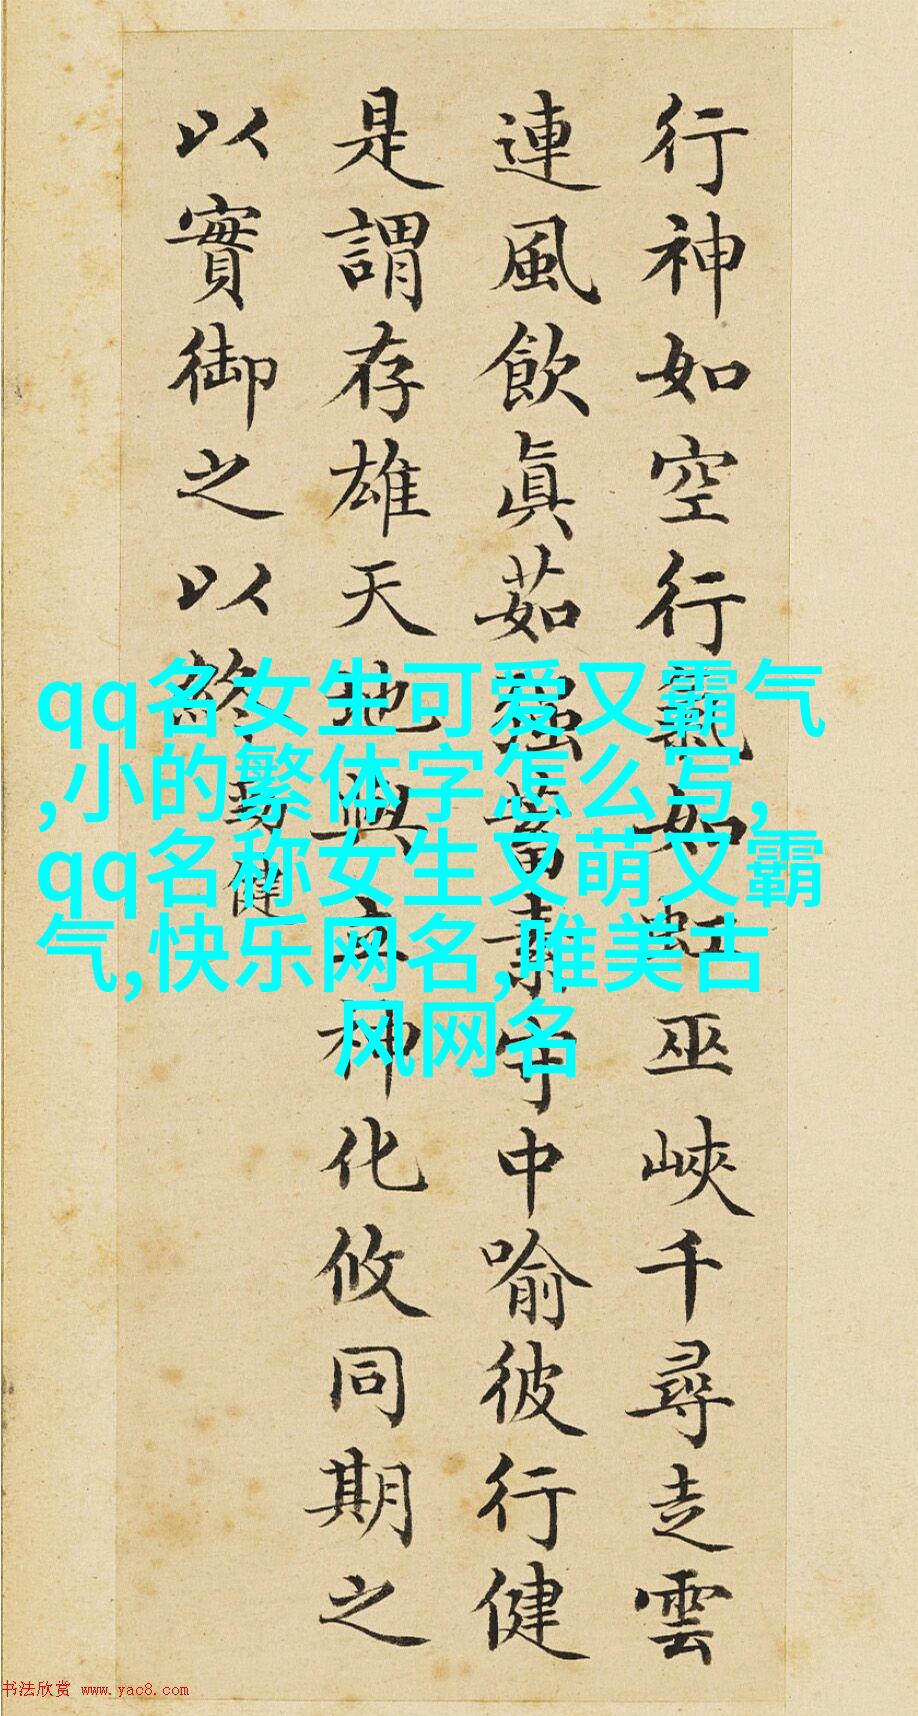 行神如空行氣如虹巫峽千尋走雲
連風飲眞茹强蓄素守中喻彼行健
是謂存雄天地與立神化攸同期之
以實御之以終
勁健
qq名女生可爱又霸气
,小的繁体字怎么写,
qq名称女生又萌又霸
气,快乐网名,唯美古
风网名
书法欣赏 www.yac8.com